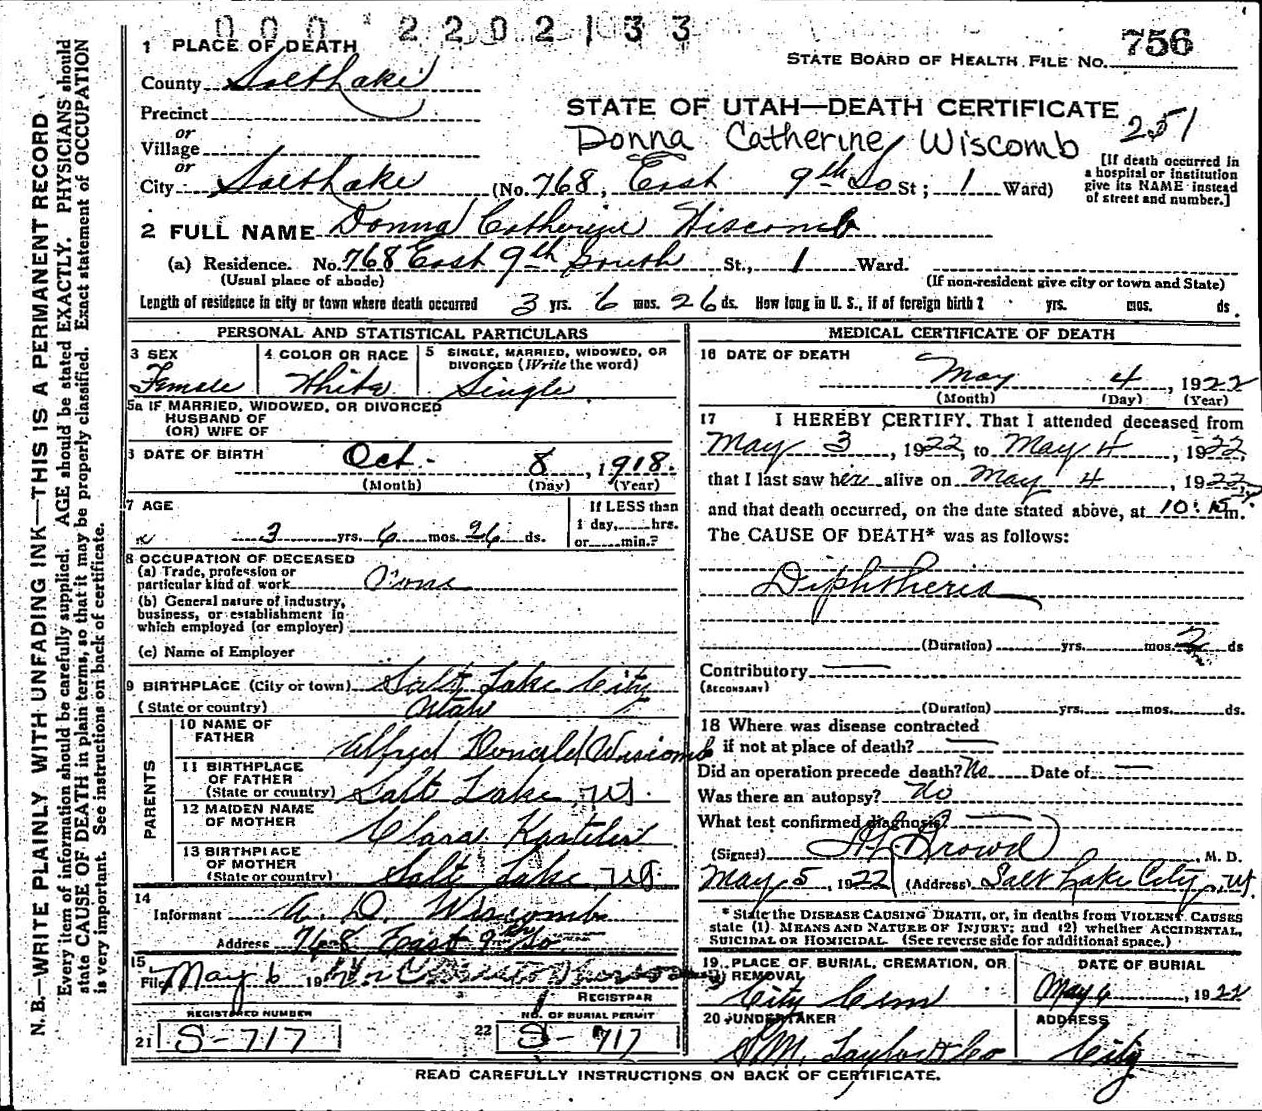 000 2202133
1 PLACE OF DEATH
STATE BOARD OF HEALTH FILE NO. 756
County Salt Lake
STATE OF UTAH—DEATH CERTIFICATE
Precinct
Donna Catherine Wiscomb 251
or
Village
or
City Salt Lake (No. 768, East 9th So St; 1 Ward)
[If death occurred in
a hospital or institution
give its NAME instead
of street and number.]
2 FULL NAME Donna Catherine Wiscomb
(a) Residence. No. 768 East 9th South St., 1 Ward.
(Usual place of abode) (If non-resident give city or town and State)
Length of residence in city or town where death occurred 3 yrs. 6 mos. 26 ds. How long in U. S., if of foreign birth? yrs. mos. ds.
PERSONAL AND STATISTICAL PARTICULARS
3 SEX
Female
4 COLOR OR RACE
White
5 SINGLE, MARRIED, WIDOWED, OR
DIVORCED (Write the word)
Single
5a IF MARRIED, WIDOWED, OR DIVORCED
HUSBAND OF
(OR) WIFE OF
6 DATE OF BIRTH Oct. 8, 1918.
(Month) (Day) (Year)
7 AGE
3 yrs. 6 mos. 26 ds.
If LESS than
1 day, hrs.
or min.?
8 OCCUPATION OF DECEASED
(a) Trade, profession or
particular kind of work None
(b) General nature of industry,
business, or establishment in
which employed (or employer)
(c) Name of Employer
9 BIRTHPLACE (City or town) Salt Lake City
(State or country) Utah
PARENTS
10 NAME OF
FATHER Alfred Donald Wiscomb
11 BIRTHPLACE
OF FATHER
(State or country) Salt Lake, Ut.
12 MAIDEN NAME
OF MOTHER Clara
13 BIRTHPLACE
OF MOTHER
(State or country) Salt Lake, Ut.
14
Informant A. D. Wiscomb
Address 768 East 9th So
15
Filed May 6 19
REGISTRAR
REGISTERED NUMBER
21 S-717
NO. OF BURIAL PERMIT
22 S-717
MEDICAL CERTIFICATE OF DEATH
16 DATE OF DEATH
May 4, 1922
(Month) (Day) (Year)
17 I HEREBY CERTIFY, That I attended deceased from
May 3, 1922, to May 4, 1922
that I last saw her alive on May 4, 1922
and that death occurred, on the date stated above, at 10:15 m.
The CAUSE OF DEATH* was as follows:
Diphtheria
(Duration) yrs. mos. 2 ds
Contributory
(SECONDARY)
(Duration) yrs. mos. ds.
18 Where was disease contracted
if not at place of death?
Did an operation precede death? No Date of
Was there an autopsy? No
What test confirmed diagnosis?
(Signed) Brown, M. D.
May 5, 1922 (Address) Salt Lake City, Ut.
* State the DISEASE CAUSING DEATH, or, in deaths from VIOLENT CAUSES
state (1) MEANS AND NATURE OF INJURY; and (2) whether ACCIDENTAL,
SUICIDAL OR HOMICIDAL (See reverse side for additional space.)
19 PLACE OF BURIAL, CREMATION, OR
REMOVAL
City Cem
DATE OF BURIAL
May 6, 1922
20 UNDERTAKER
S. M. Taylor & Co
ADDRESS
City
READ CAREFULLY INSTRUCTIONS ON BACK OF CERTIFICATE.
N. B.—WRITE PLAINLY WITH UNFADING INK—THIS IS A PERMANENT RECORD
Every item of information should be carefully supplied. AGE should be stated EXACTLY. PHYSICIANS should
state CAUSE OF DEATH in plain terms, so that it may be properly classified. Exact statement of OCCUPATION
is very important. See instructions on back of certificate.